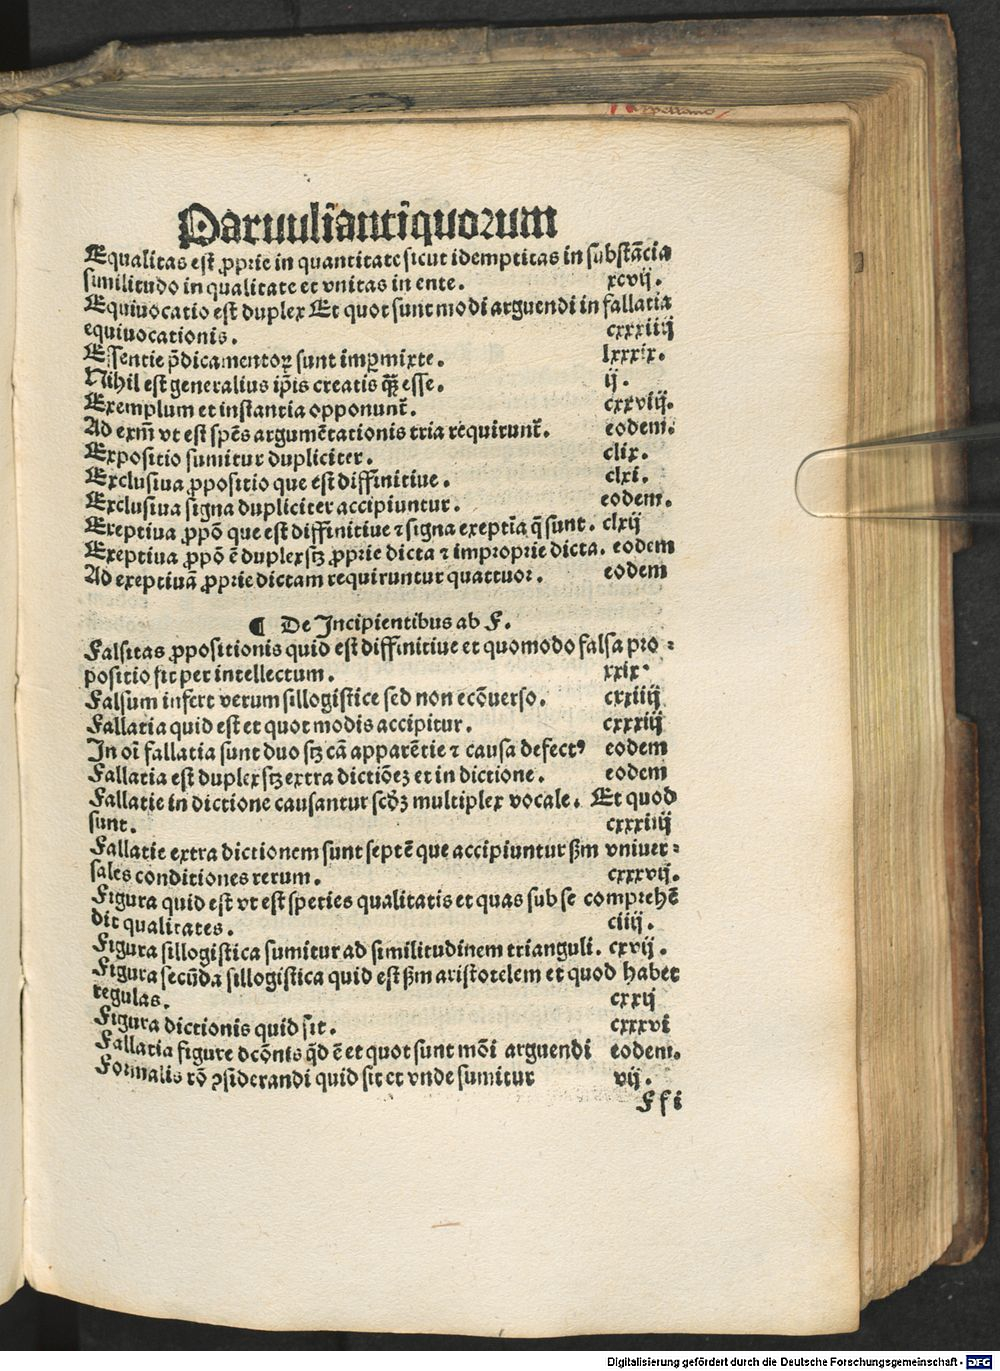 Paruuli antiquorum
Equalitas est ꝓprie in quantitate sicut idemptitas in substãcia
similitudo in qualitate et vnitas in ente. xcvij.
Equiuocatio est duplex Et quot sunt modi arguendi in fallatia
equiuocationis. cxxxiiij
Essentie p̃dicamentoꝝ sunt imꝑmixte. lxxxix.
Nihil est generalius ip̃is creatis q̃ꝫ esse. ij.
Exemplum et instantia opponunt̃. cxxviij.
Ad exm̃ vt est spẽs argumẽtationis tria requirunt̃. eodem.
Expositio sumitur dupliciter. clix.
Exclusiua ꝓpositio que est diffinitiue. clxi.
Exclusiua signa dupliciter accipiuntur. eodem.
Exeptiua ꝓpõ que est diffinitiue ⁊ signa exeptĩa q̃ sunt. clxij
Exeptiua ꝓpõ ẽ duplex sꝫ ꝓprie dicta ⁊ improprie dicta. eodem
Ad exeptiuã ꝓprie dictam requiruntur quattuor. eodem
¶ De Incipientibus ab F.
Falsitas ꝓpositionis quid est diffinitiue et quomodo falsa pro⸗
positio fit per intellectum. xxix.
Falsum infert verum sillogistice sed non ecõuerso. cxxiiij
Fallatia quid est et quot modis accipitur. cxxxiij
In oĩ fallatia sunt duo sꝫ cã apparẽtie ⁊ causa defectꝰ eodem
Fallatia est duplex sꝫ extra dictiõeꝫ et in dictione. eodem
Fallatie in dictione causantur scd̃ꝫ multiplex vocale. Et quod
sunt. cxxxiiij
Fallatie extra dictionem sunt septẽ que accipiuntur ẞm vniuer⸗
sales conditiones rerum. cxxxvij.
Figura quid est vt est species qualitatis et quas sub se comprehẽ
dit qualitates. ciiij.
Figura sillogistica sumitur ad similitudinem trianguli. cxvij.
Figura secũda sillogistica quid est ẞm aristotelem et quod habet
regulas. cxxij
Figura dictionis quid sit. cxxxvi
Fallatia figure dcõnis q̃d ẽ et quot sunt mõi arguendi eodem.
Formalis rõ ꝯsiderandi quid sit et vnde sumitur vij.
F f i
Digitalisierung gefördert durch die Deutsche Forschungsgemeinschaft - DFG